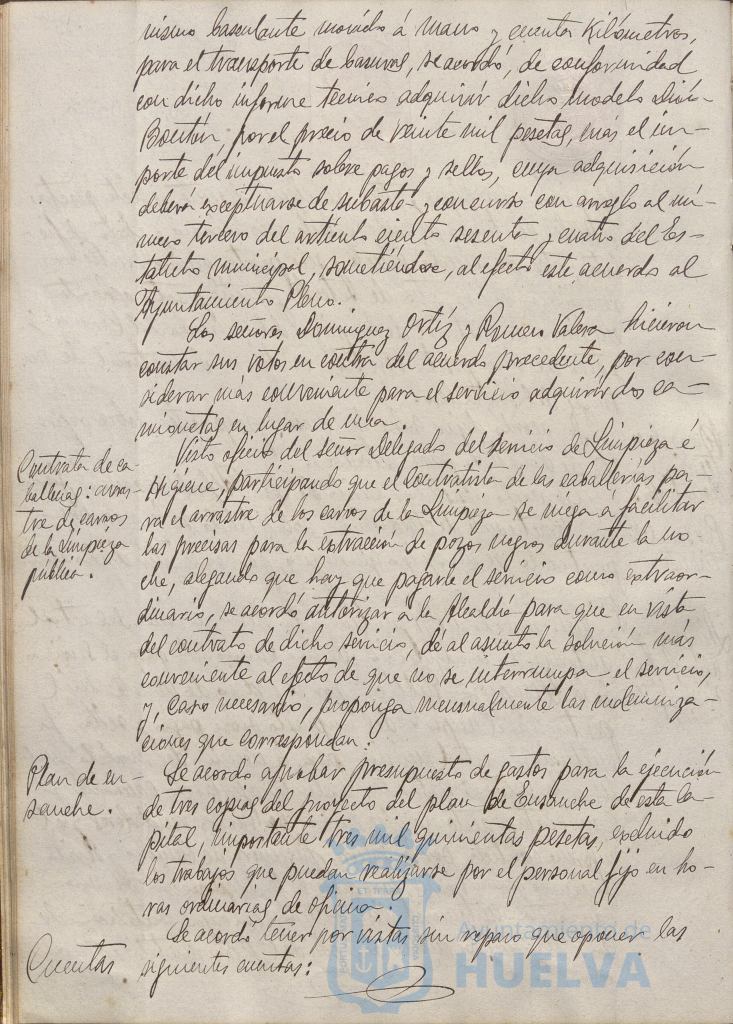 mismo basculante movido á mano y cuenta Kilómetros,
para el transporte de basuras, se acordó, de conformidad
con dicho informe tecnico adquirir dicho modelo Dión-
Boutón, por el precio de veinte mil pesetas, más el im-
porte del impuesto sobre pagos y sellos, cuya adquisición
deberá exceptuarse de subasta y concurso con arreglo al nú-
mero tercero del artículo ciento sesenta y cuatro del Es-
tatuto municipal, sometiéndose, al efecto este acuerdo al
Ayuntamiento Pleno.
Los señores Dominguez Ortíz y Romero Valera hicieron
constar sus votos en contra del acuerdo precedente, por con-
siderar más conveniente para el servicio adquirir dos ca-
mionetas en lugar de una.
Contrata de ca-
ballerías: arras-
tre de carros
de la Limpieza
pública.
Visto oficio del señor Delegado del servicio de Limpieza é
Higiene, participando que el Contratista de las caballerías pa-
ra el arrastre de los carros de la Limpieza se niega á facilitar
las precisas para la extracción de pozos negros durante la no-
che, alegando que hay que pagarle el servicio como extraor-
dinario, se acordó autorizar a la Alcaldía para que en vista
del contrato de dicho servicio, dé al asunto la solución más
conveniente al efecto de que no se interrumpa el servicio,
y, caso necesario, proponga mensualmente las indemniza-
ciones que correspondan.
Plan de en-
sanche.
Se acordó aprobar presupuesto de gastos para la ejecución
de tres copias del proyecto del plan de Ensanche de esta Ca-
pital, importante tres mil quinientas pesetas, excluido
los trabajos que puedan realizarse por el personal fijo en ho-
ras ordinarias de oficina.
Cuentas
Se acordó tener por vistas sin reparo que oponer las
siguientes cuentas:
Ayuntamiento de
HUELVA